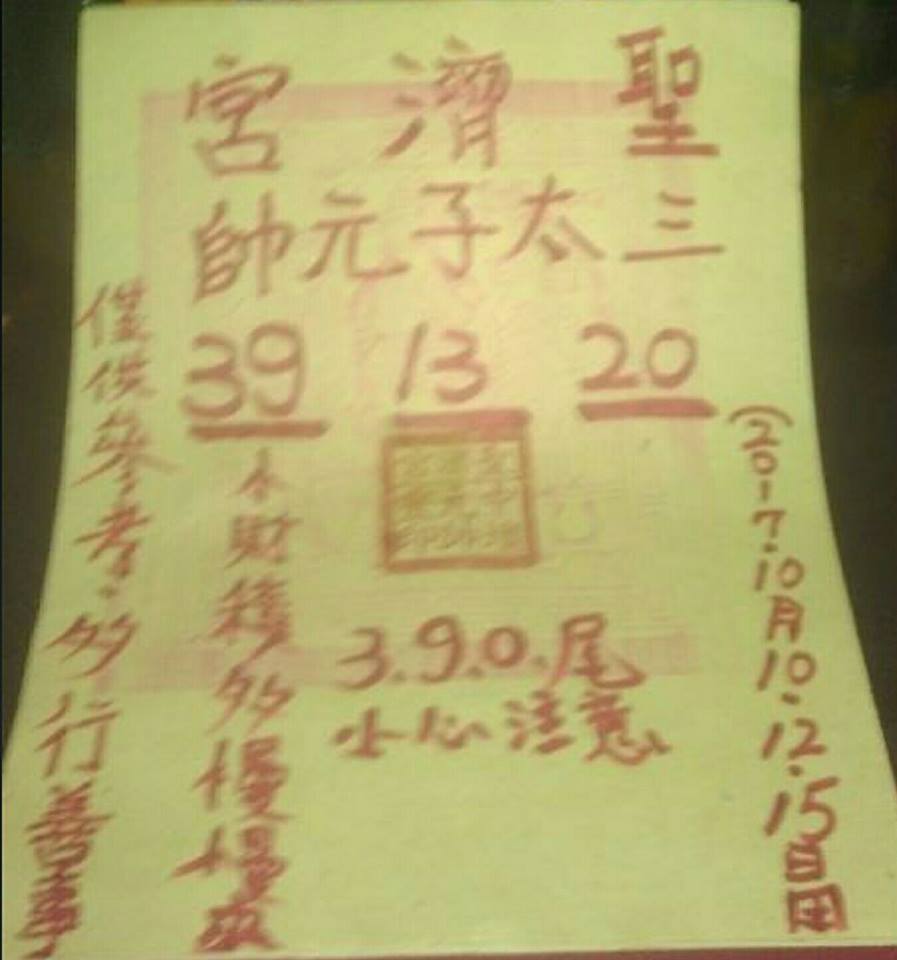 聖濟宮
三太子元帥
20 13 39
(2017.10月10.12.15日用
3.9.0.尾
小心注意
小財積多慢慢來
僅供參考.多行善事